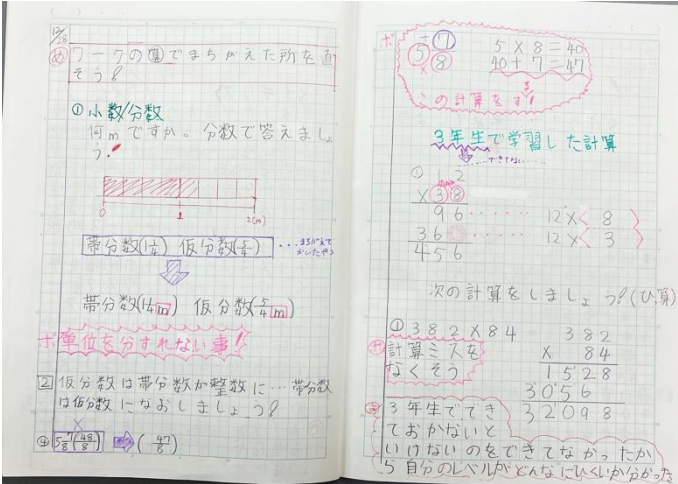 12/28
め ワークの算でまちがえた所を直
そう!
① 小数/分数
何mですか。分数で答えましょ
う!
0 1 2(m)
帯分数(1 1/4) 仮分数(5/4) …まちがえて
かいたやつ
帯分数(1 1/4 m) 仮分数(5/4 m)
ポ 単位を分すれない事!
② 仮分数は帯分数か整数に…帯分数
は仮分数になおしましょう!
④ 5 7/8 (48/8) ➡ (47/8)
ポ
+ 7
5 8
×
5×8=40
40+7=47
この計算をす!
3年生で学習した計算
できてない
① 2
×38
96 …… 12×< 8 >
36 …… 12×< 3 >
456
次の計算をしましょう!(ひ算)
① 382×84
382
× 84
1528
3056
32098
ポ 計算ミスを
なくそう
3年生ででき
ておかないと
いけないのをできてなかったか
ら自分のレベルがどんなにひくいか分かった